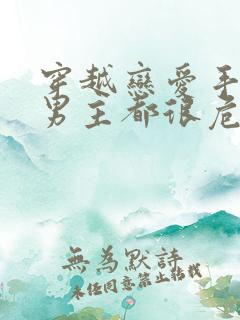 穿越戀愛手
男主都很危
無為默詩
未經同意禁止轉載